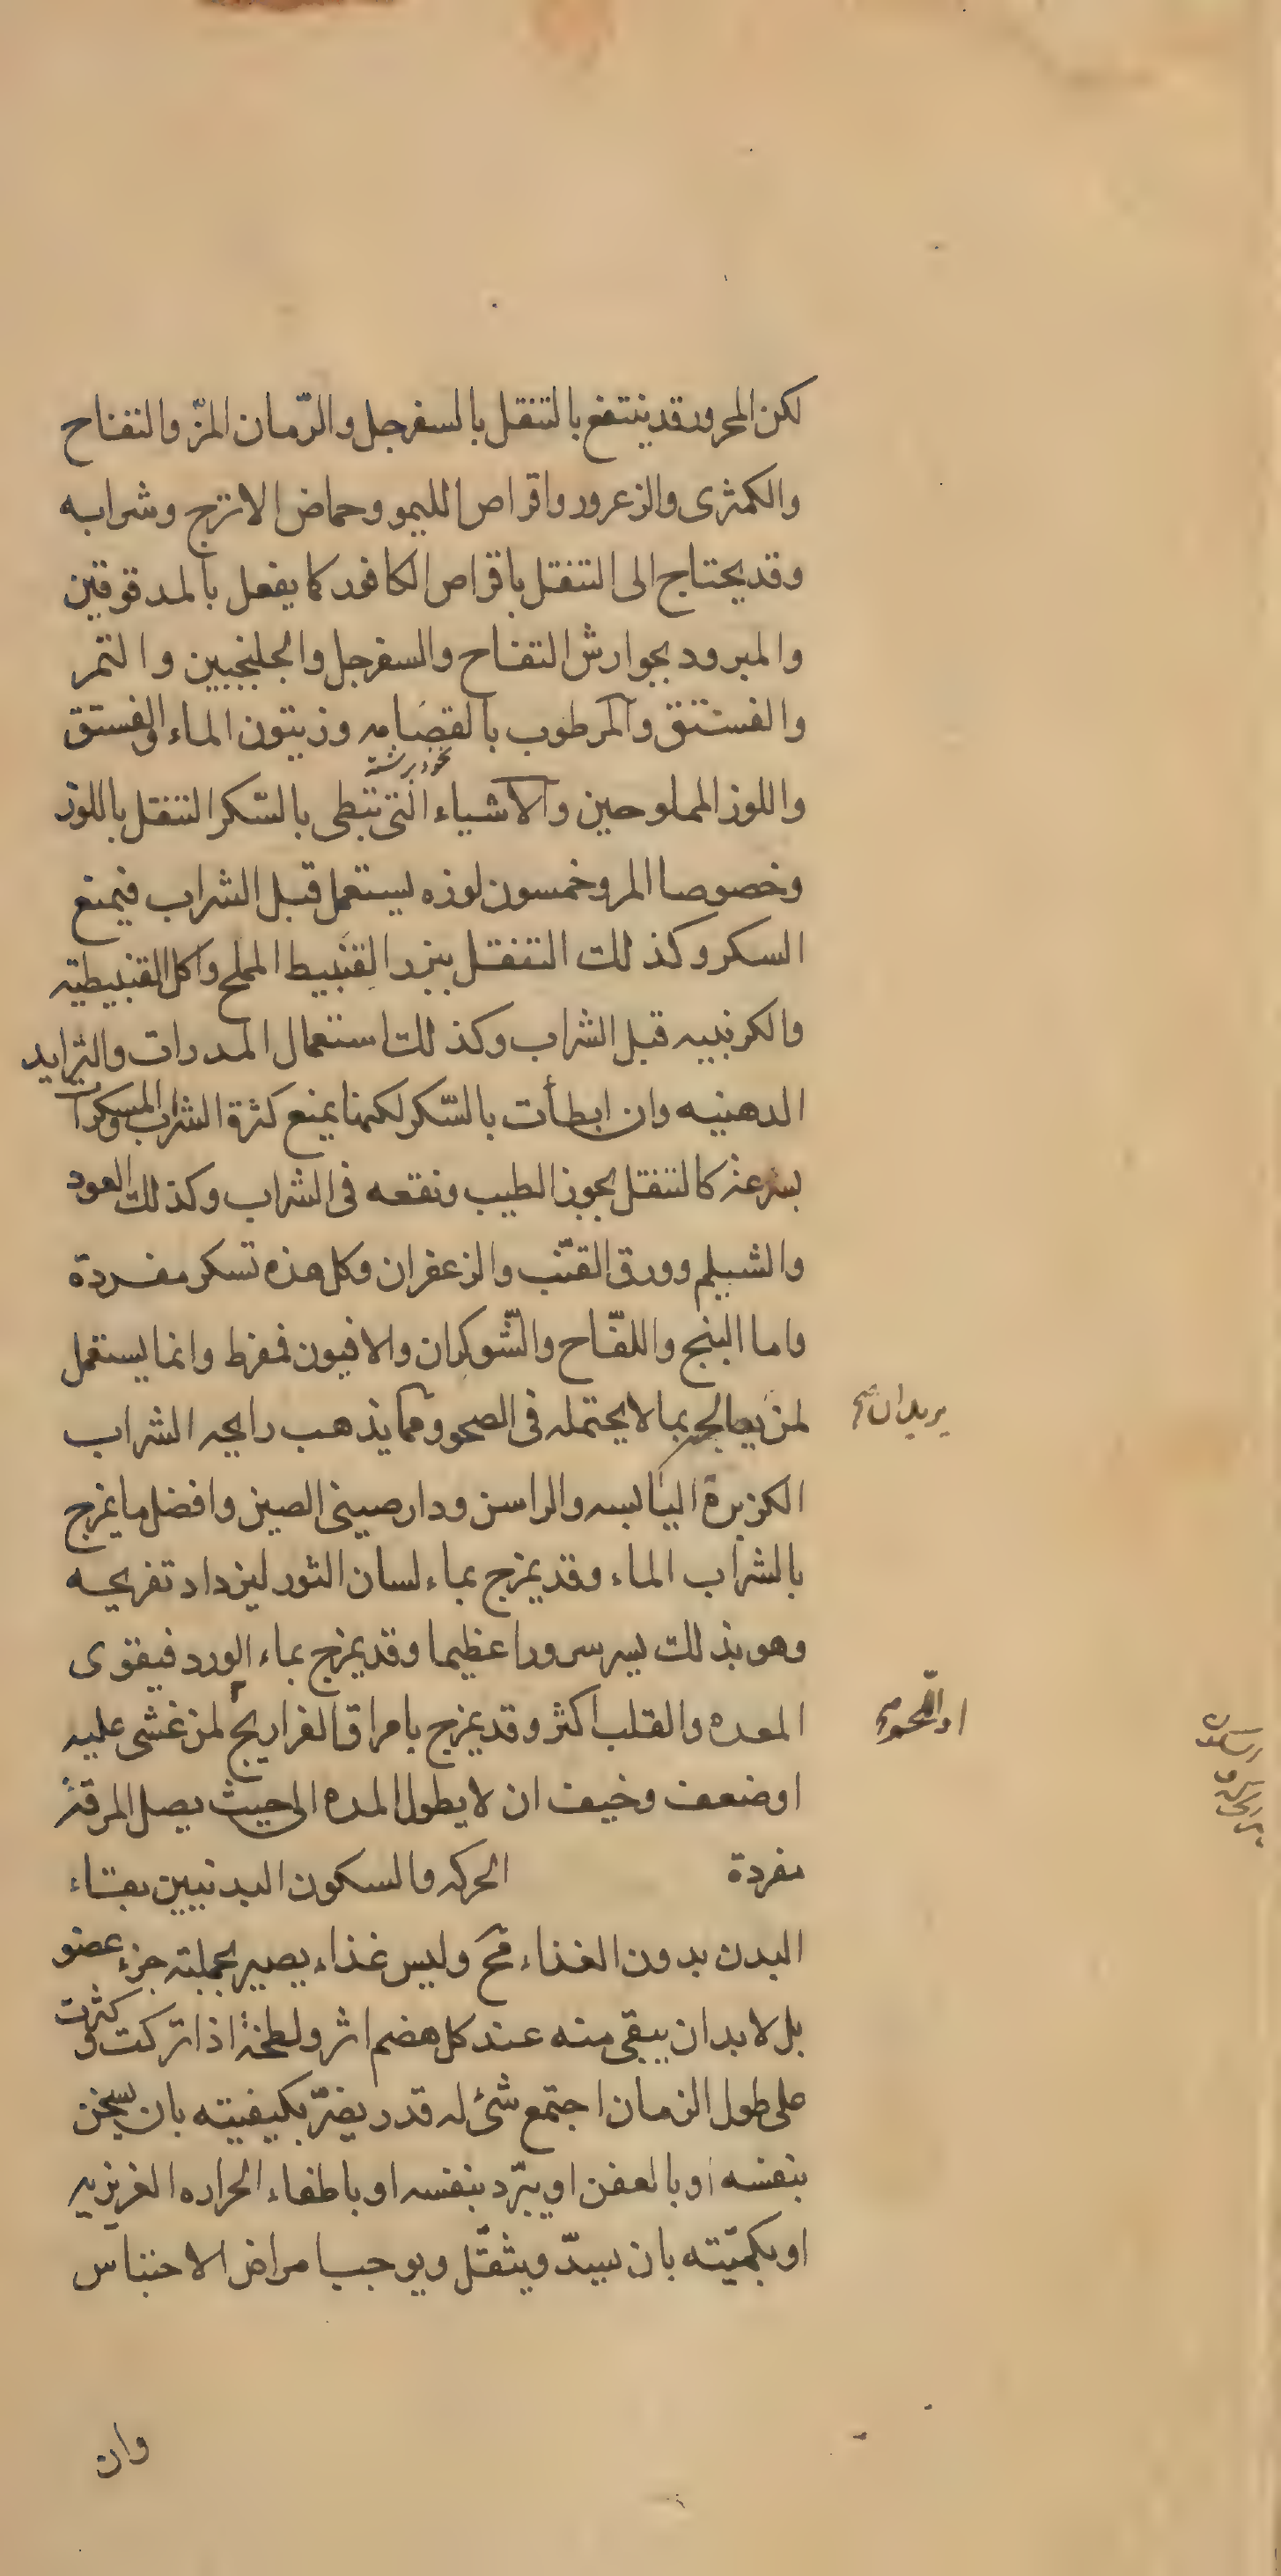 لكن المحرور قد ينتفع بالتنقل بالسفرجل والرّمان المزّ والتفاح
والكمثرى والزعرور واقراص الليمو وحماض الاترج وشرابه
وقد يحتاج الى التنقل باقراص الكافور كما يفعل بالمدقوقين
والمبرود بجوارش التفاح والسفرجل والجلنجبين والتمر
والفستق والمرطوب بالقضامه وزيتون الماء والفستق
نخود برشته
واللوز المملوحين والاشياء التى تبطى بالسّكر التنقل باللوز
وخصوصا المر وخمسون لوزه يستعمل قبل الشراب فيمنع
السكر وكذلك التنقل ببزر القنّبيط المملح واكل القنبيطيه
والكرنبيه قبل الشراب وكذلك استعمال المدرات والثرايد
الدهنيه وان ابطأت بالسّكر لكنها يمنع كثرة الشراب والمسكرات
بسرعة كالتنقل بجوز الطيب ونقعه فى الشراب وكذلك العود
والشيلم وورق القنّب والزعفران وكل هذه تسكر مفردة
واما البنج واللفّاح والشّوكران والافيون فمفرط وانما يستعمل
لمن يعالجه بما لا يحتمله فى الصحو ومما يذهب رايحه الشراب
يريد ان صح
الكزبرة اليابسه والراسن ودارصينى الصين وافضل ما يمزج
بالشراب الماء وقد يمزج بماء لسان الثور ليزداد تفريحه
وهو بذلك يسر سرورا عظيما وقد يمزج بماء الورد فيقوى
المعده والقلب اكثر وقد يمزج بامراق الفراريج لمن غشى عليه
او اللحوم
اوضعف وخيف ان لا يطول المده الى حيث يصل المرقة
مفردة الحركه والسكون البدنيين بقاء
البدن بدون الغذاء مح وليس غذاء يصير بجملته جزء عضو
بل لابد ان يبقى منه عند كل هضم اثر ولطخة اذا تركت وكثرت
على طول الزمان اجتمع شئ له قدر يضرّ بكيفيته بان يسخن
بنفسه او بالعفن او يبرّد بنفسه او باطفاء الحراره الغريزيه
او بكميّته بان يسدّ ويثقّل ويوجب امراض الاحتباس
وان